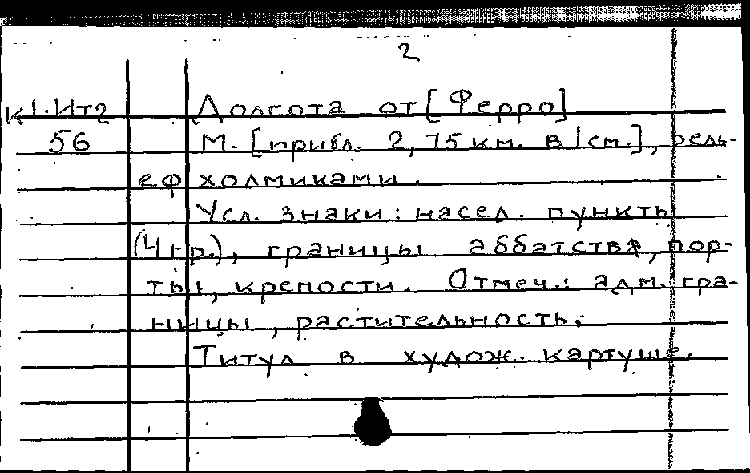 2
К1.Ит2 Долгота от [Ферро]
56 М. [прибл. 2,75 км. в 1 см.], рель-
еф холмиками.
Усл. знаки: насел. пункты
(4 гр.), границы аббатства, пор-
ты, крепости. Отмеч.: адм. гра-
ницы, растительность.
Титул в худож. картуше.